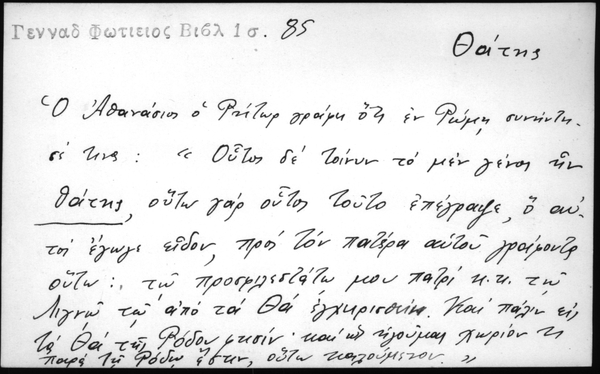 Γενναδ Φωτιειος Βιβλ 1 σ. 85
Θάτης
Ὁ Ἀθανάσιος ὁ Ρήτωρ γράφη ὅτι ἐν Ρώμῃ συνήντη-
σέ τινα : « Οὗτος δέ τοίνυν τό μέν γένος ἦν
Θάτης, οὕτω γάρ οὗτος τοῦτο ἐπέγραψε, ὅ αὐ-
τοί ἔγωγε εἶδον, πρός τόν πατέρα αὐτοῦ γράφοντα
οὕτω : τῷ προσφιλεστάτῳ μου πατρί κ.κ. τῷ
Λιγνῷ τῷ ἀπό τά Θά ἐγχειρισθείη. Καί πάλιν εἰς
τά Θά τῆς Ρόδου φησίν · καί ὡς ἡγοῦμαι χωρίον τι
παρά τῇ Ρόδῳ ἔστιν, οὕτω καλούμενον. »